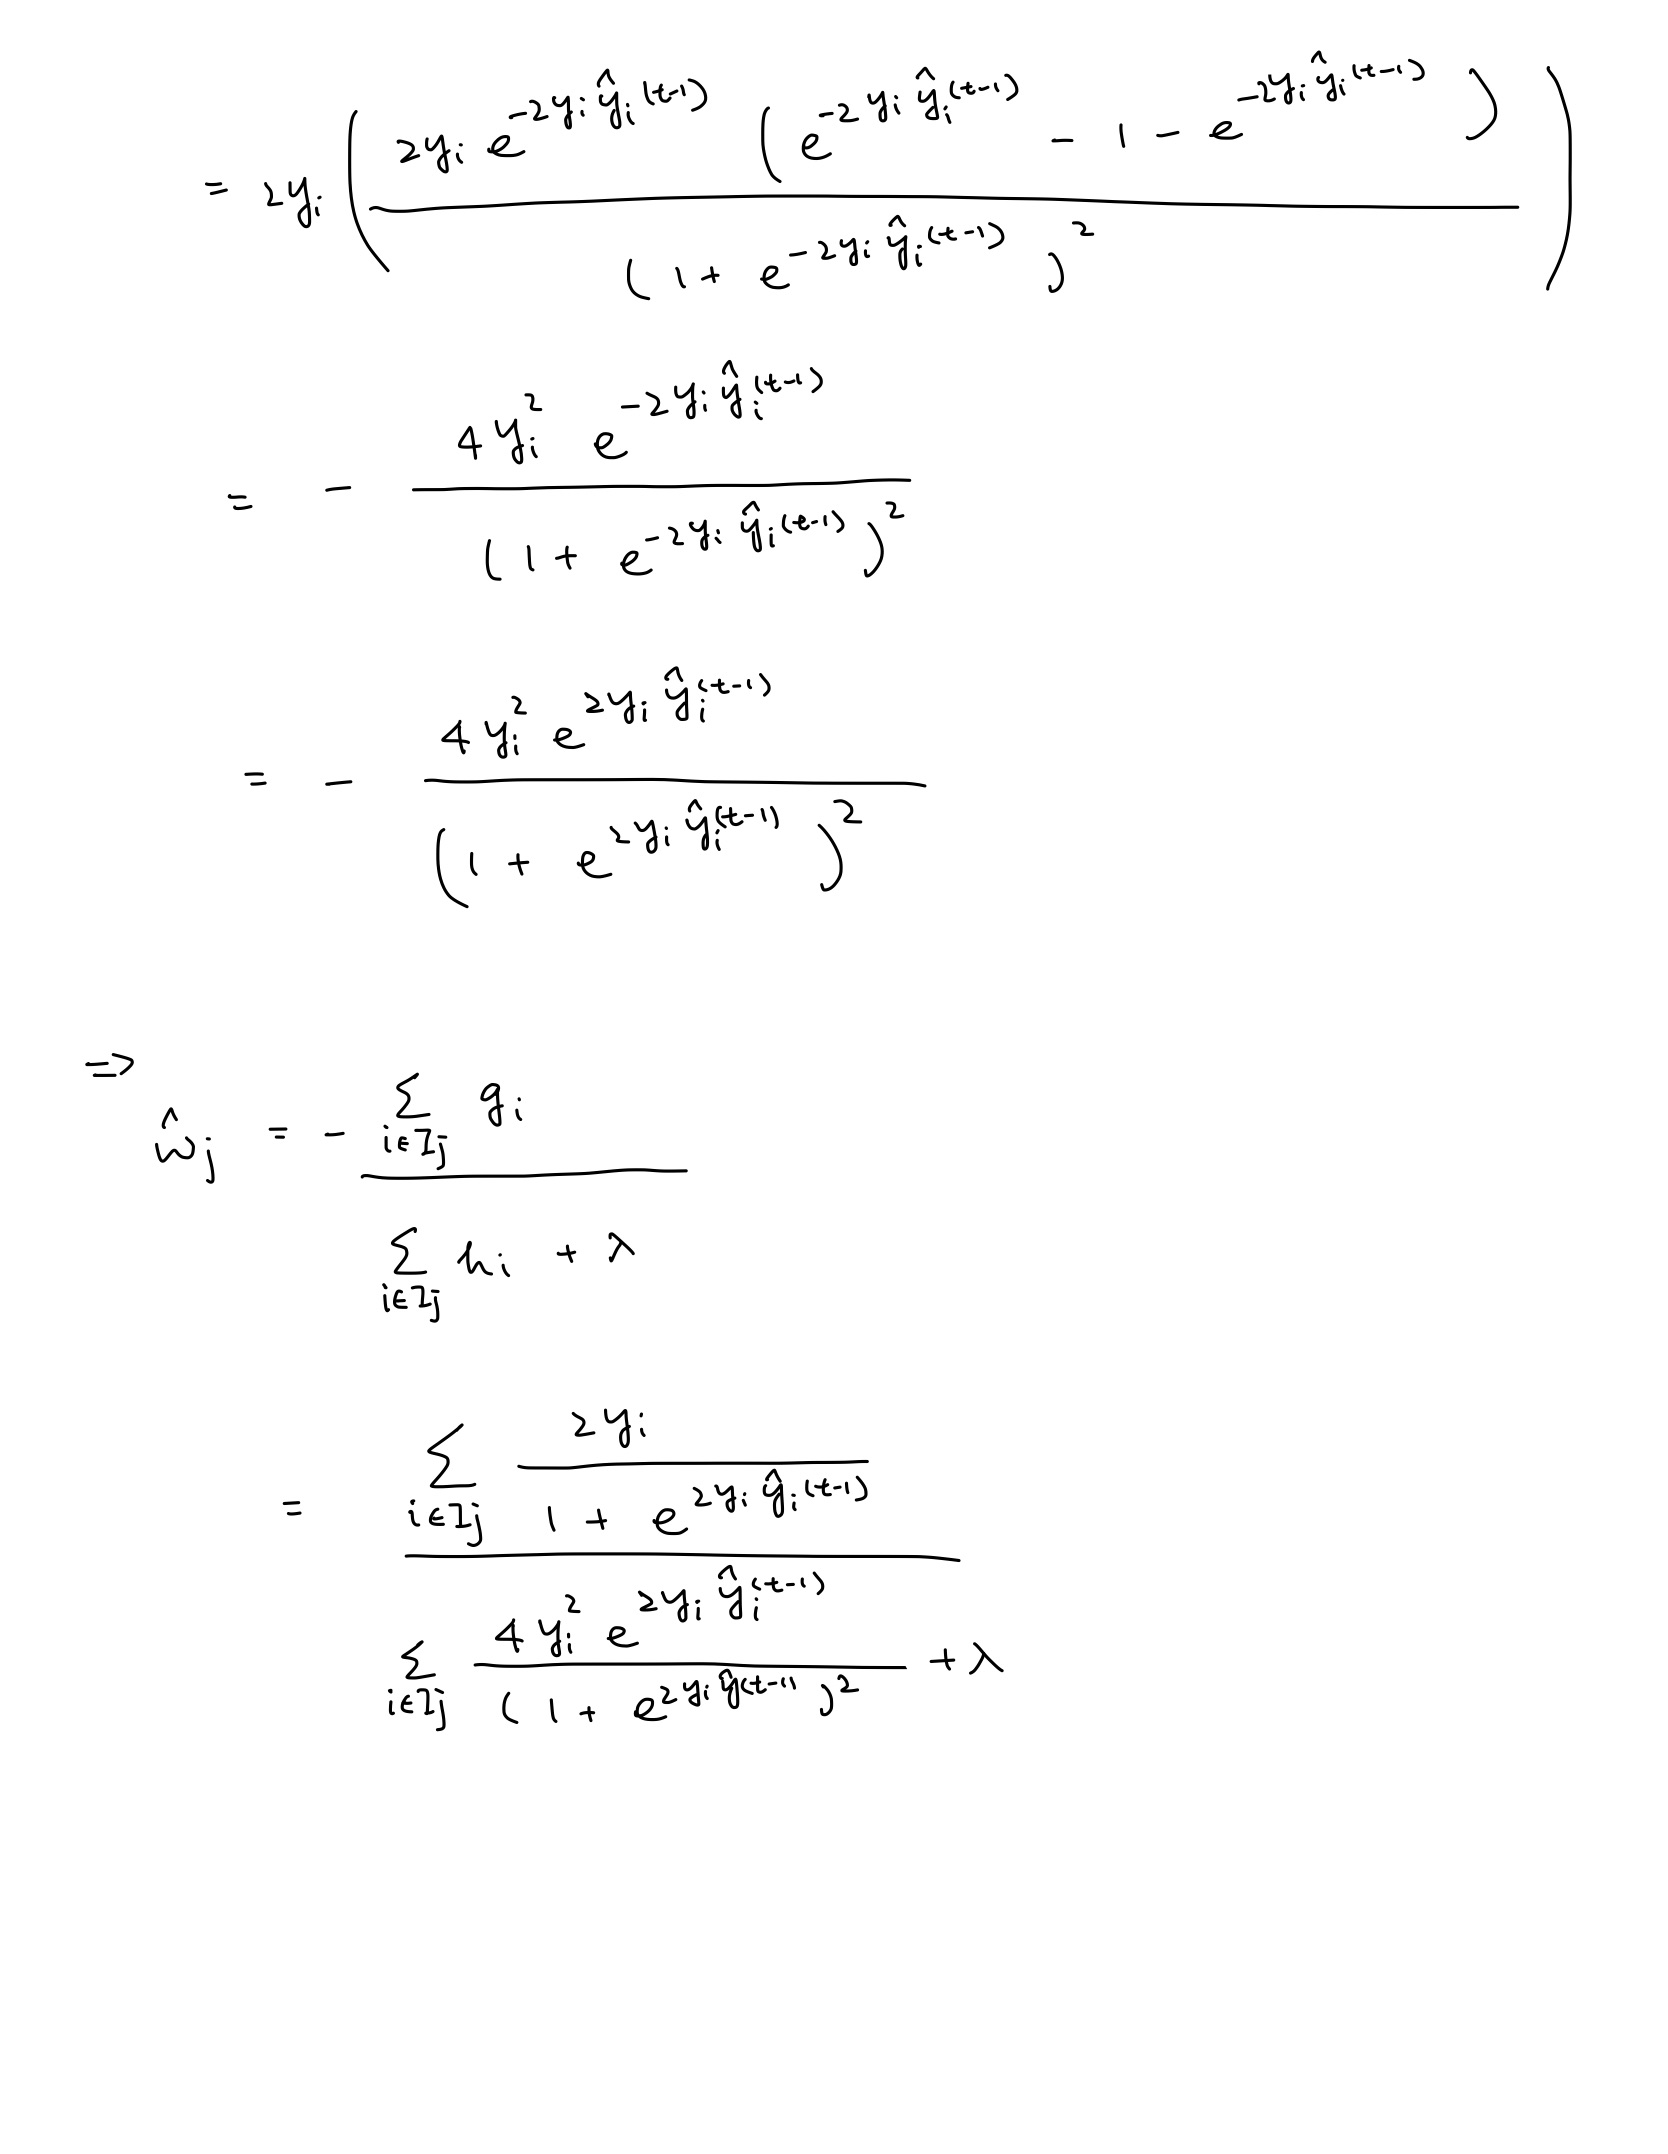 = 2y_i ( \frac{2y_i e^{-2y_i \hat{y}_i^{(t-1)}} ( e^{-2y_i \hat{y}_i^{(t-1)}} - 1 - e^{-2y_i \hat{y}_i^{(t-1)}} )}{( 1 + e^{-2y_i \hat{y}_i^{(t-1)}} )^2} )
= - \frac{4y_i^2 e^{-2y_i \hat{y}_i^{(t-1)}}}{( 1 + e^{-2y_i \hat{y}_i^{(t-1)}} )^2}
= - \frac{4y_i^2 e^{2y_i \hat{y}_i^{(t-1)}}}{( 1 + e^{2y_i \hat{y}_i^{(t-1)}} )^2}
=>
\hat{w}_j = - \frac{\sum_{i \in I_j} g_i}{\sum_{i \in I_j} h_i + λ}
= \frac{\sum_{i \in I_j} \frac{2y_i}{1 + e^{2y_i \hat{y}_i^{(t-1)}}}}{\sum_{i \in I_j} \frac{4y_i^2 e^{2y_i \hat{y}_i^{(t-1)}}}{( 1 + e^{2y_i \hat{y}^{(t-1)}} )^2} + λ}